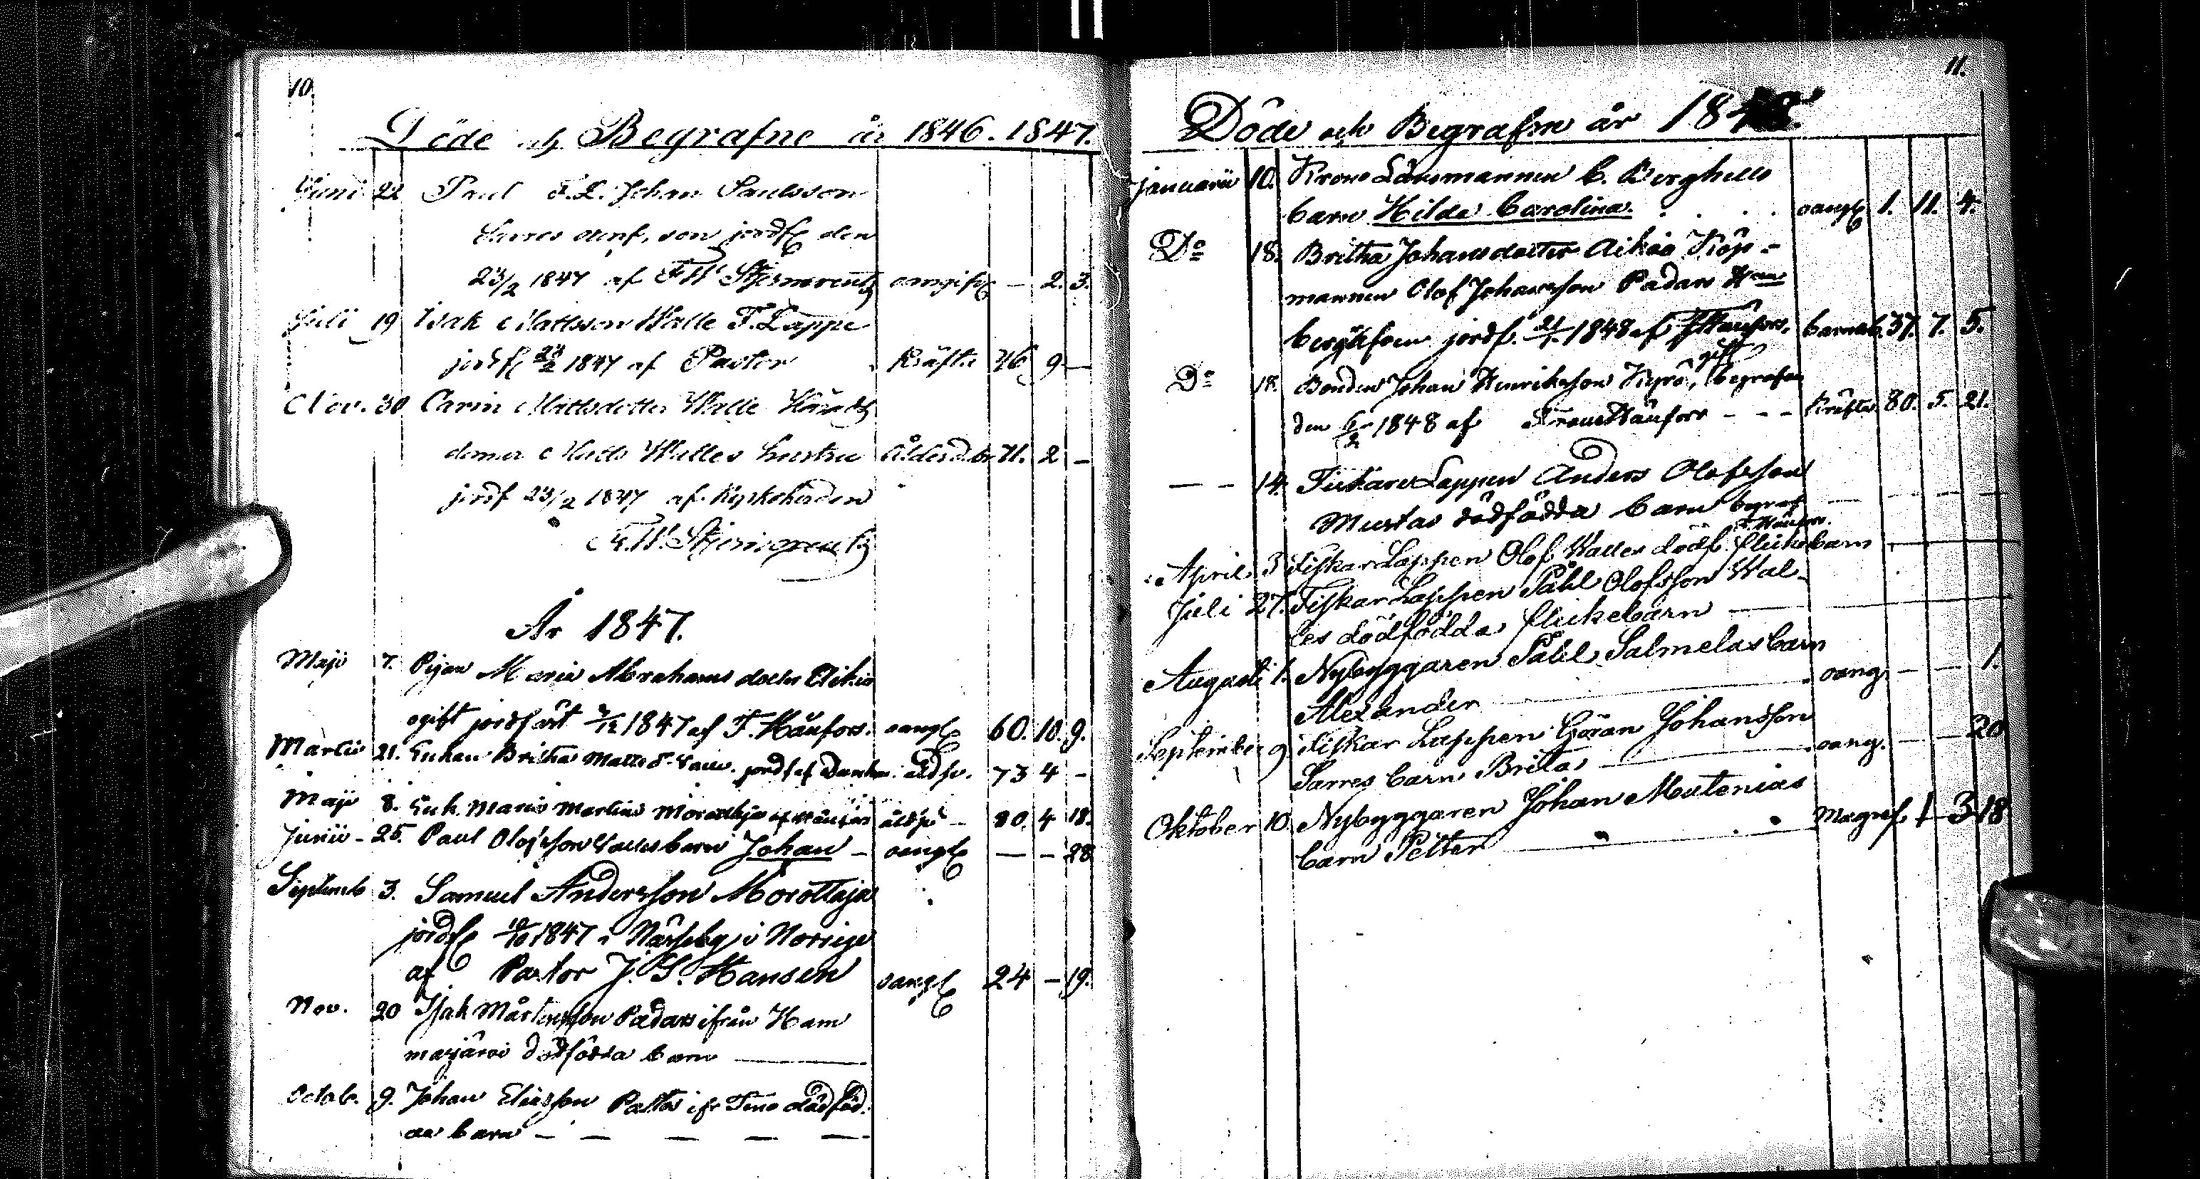 10.
Döde och Begrafne år 1846. 1847.
Juni 22 Paul F.L. Johan Paulsson
Sarres son jordf. den
23/2 1847 af F W Stjerncreutz 2. 3.
Juli 19 Isak Mattsson Walle F. Lappe
jordf 1847 af Pastor Kräfta 76 9 —
Nov. 30 Carin Mattsdotter Walle
Matts Walles hustru Ålderd. 71. 2 —
jordf 23/2 1847 af Kyrkoherden
F.W. Stjerncreutz
År 1847.
Maji 7. Pigan Maria Abrahams dotter Aikio
ogift jordfäst 1847 af F. Hänfors. oangf 60. 10. 9.
Martii 21. Enkan Britha Matts d. jordf af 73 4 —
Maji 8. Enk. Maria Martins Morottaja af åldr — 80. 4 18.
Junii — 25. Paul Olofsson Valles barn Johan — oangf — — 28
Septemb 3. Samuel Andersson Morottaja
jordf 1847 i Nässeby i Norrige
af Pastor J. G. Hansen oangf 24 — 19.
Nov. 20 Isak Mårtensson Padars ifrån Ham
marjärvi dödfödda barn
Octob. 9. Johan Eliasson Paltos ifr Teno dödföd.
da barn — — — — —
11.
Döde och Begrafne år 1848.
Januarii 10. Krono Länsmannen C. Berghells
barn Hilda Carolina. oangf 1. 11. 4.
Do 18. Britha Johansdotter Aikio Köp-
mannen Olof Johansson Padars
jordf. 21/1 1848 af F Hänfors. barnsb. 37. 7. 5.
Do 18. Bonden Johan Henriksson Kyrö, gift begrafen
den 6/2 1848 af Frans Hänfors — — — Kräfta 80. 5. 21.
— — 14. Fiskare Lappen Anders Olofsson
Mustas dödfödda barn begraf
F. Hänfors.
April 3 Fiskar Lappen Olof Walles dödf. flickebarn
Juli 27. Fiskar Lappen Påhl Olofsson Wal-
les dödfödda flickebarn
Augusti 1. Nybyggaren Påhl Salmelas barn
Alexander oang. — — 1.
September 9 Fiskar Lappen Göran Johansson
Sarres barn Brita oang. — — 20
Oktober 10. Nybyggaren Johan Mutenias
barn Petter Magref. 1 3 18